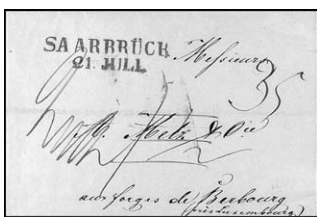 SAARBRÜCK
21. JULI.
Messieurs
Metz & Cie
aux forges de Berbourg
(près Luxembourg)